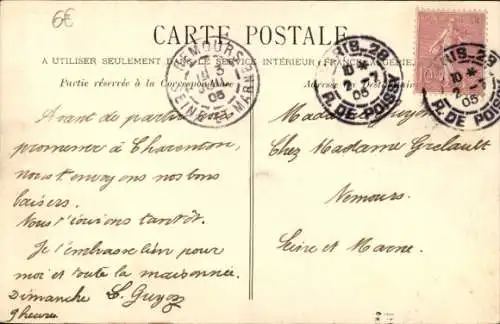 6€
CARTE POSTALE
A UTILISER SEULEMENT DANS LE SERVICE INTÉRIEUR, FRANCE, ALGÉRIE
Partie réservée à la Correspondance
Adresse
NEMOURS
3
05
SEINE-ET-MARNE
PARIS_28
10
2-7
05
R. DE POISSY
PARIS_28
10
2-7
05
R. DE POISSY
Avant de partir nous
promener à Charenton,
nous t'envoyons nos bons
baisers.
Nous t'écrirons tantôt.
Je t'embrasse bien pour
moi et toute la maisonnée.
Dimanche L. Guyot
9 heures
Madame Guyot
Chez Madame Grelault
Nemours
Seine et Marne